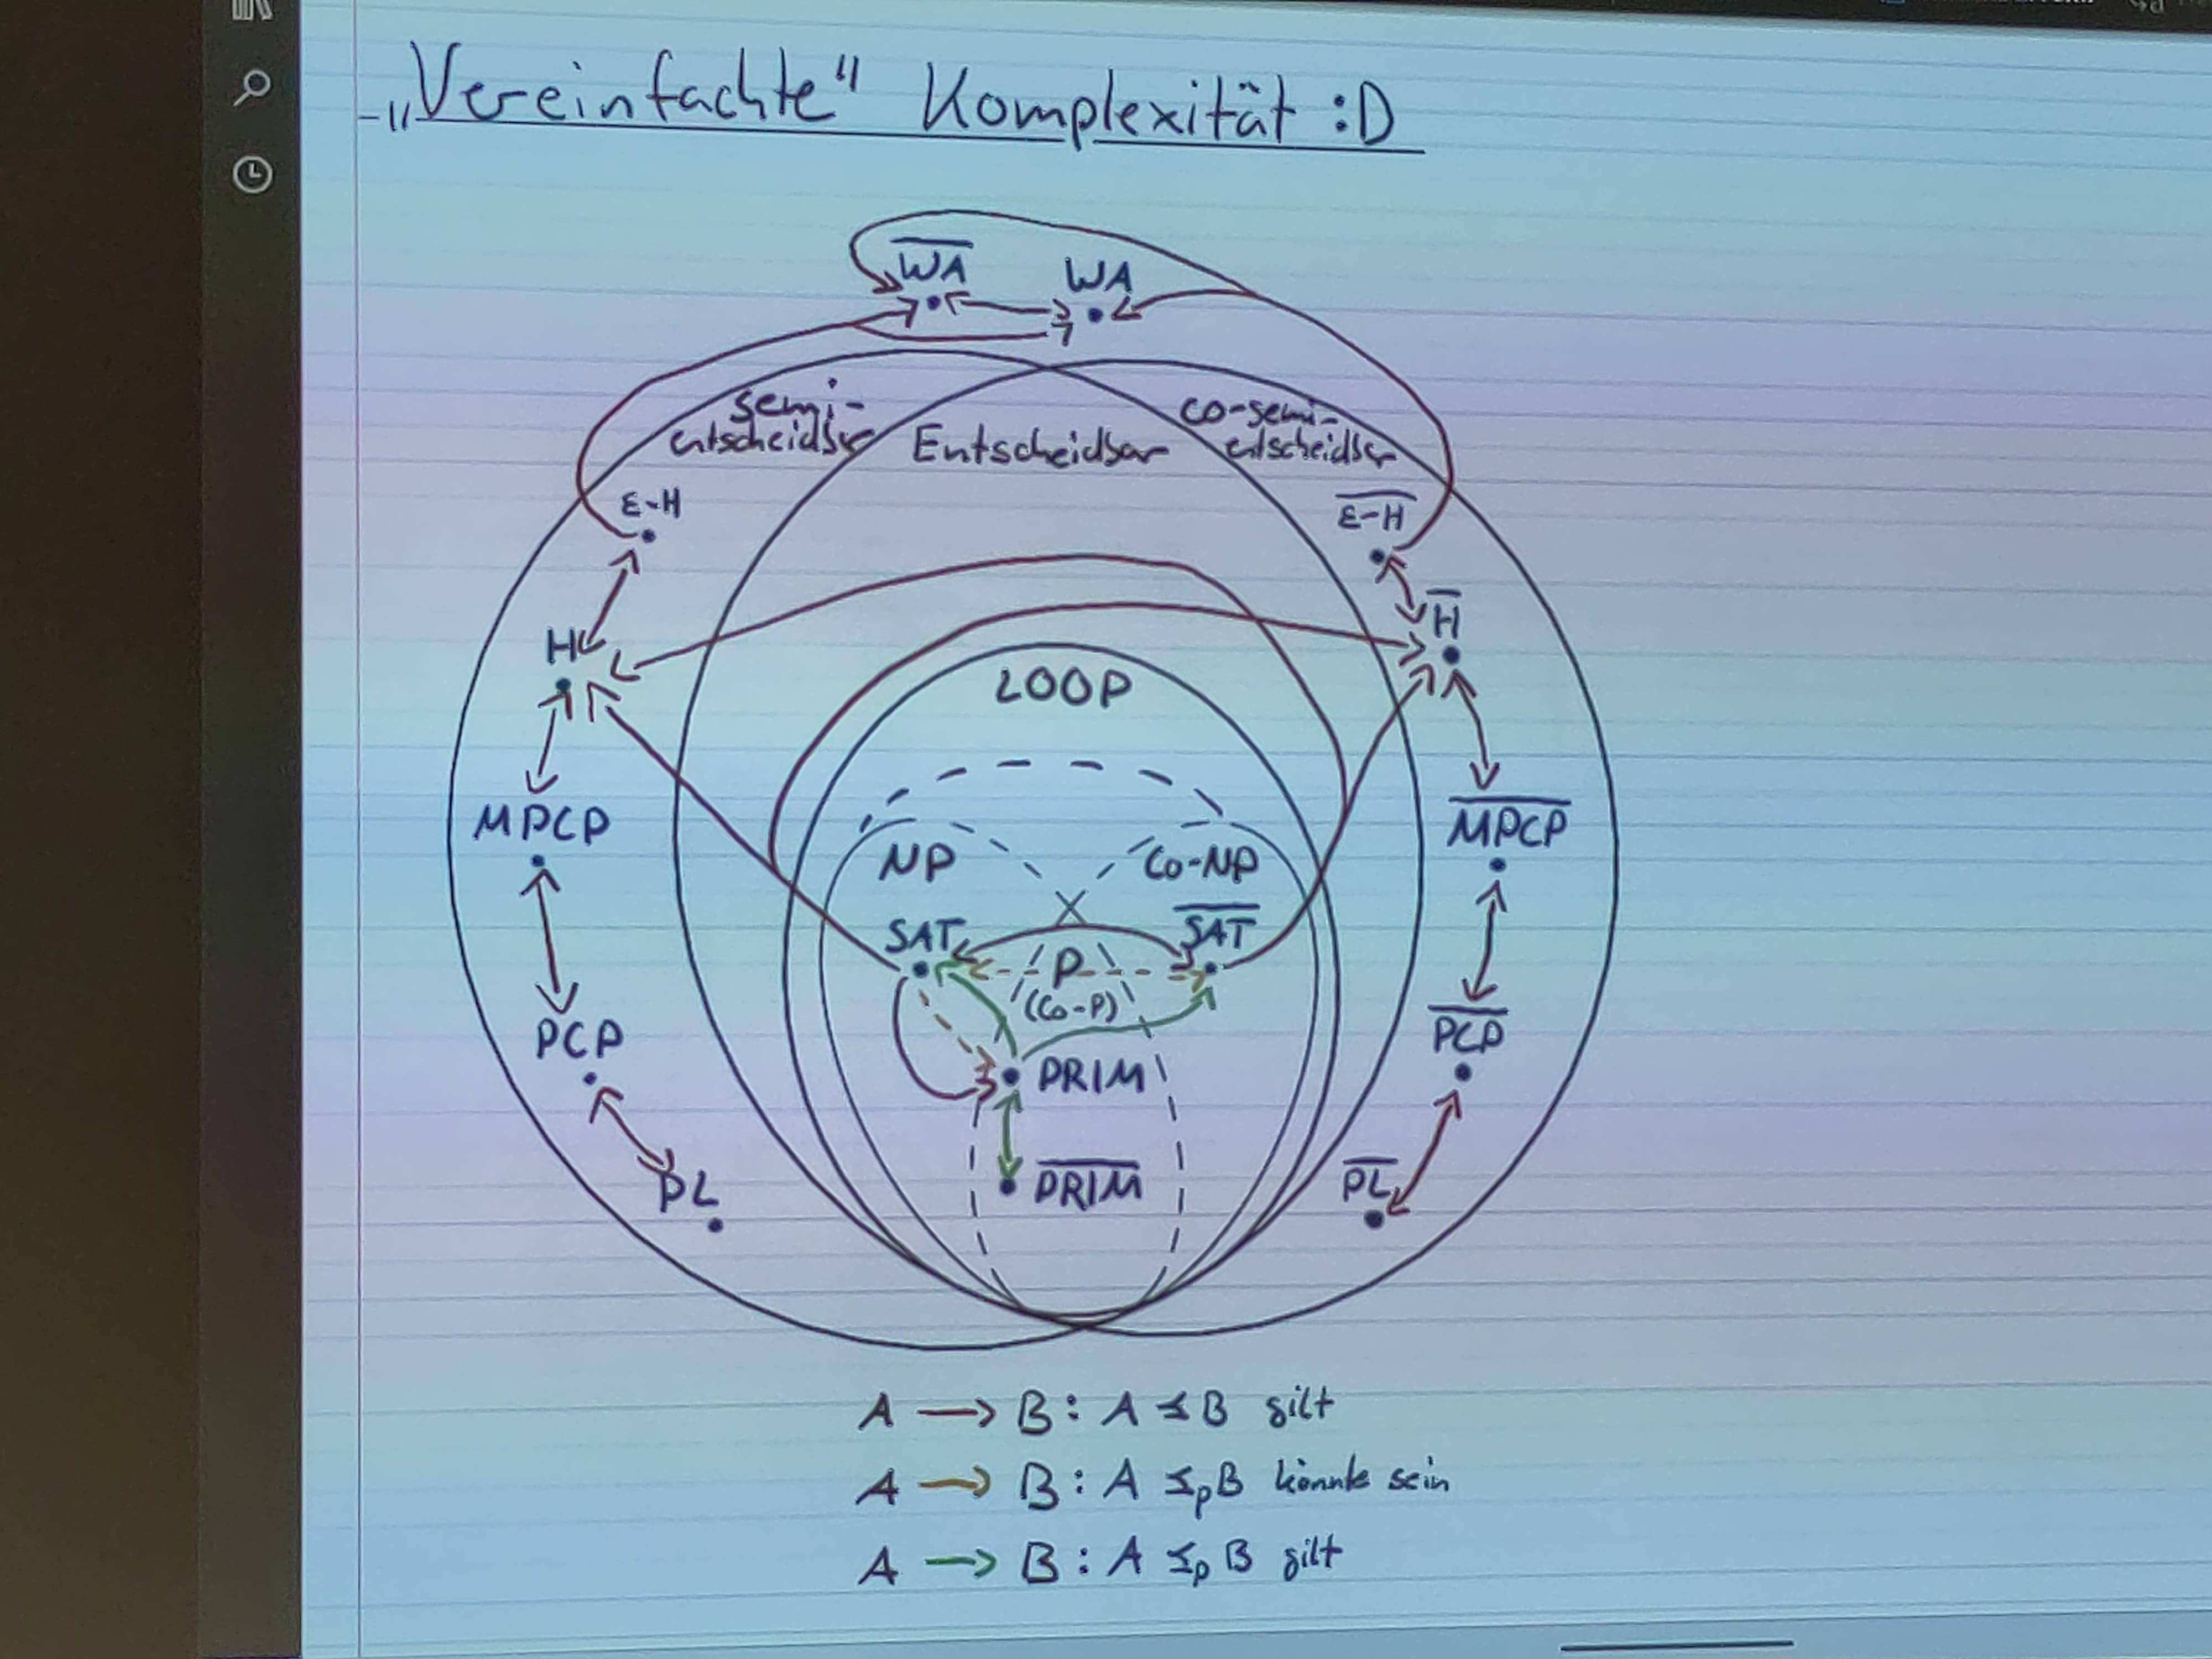 „Vereinfachte" Komplexität :D
W̅A̅ WA
semi-
entscheidbar
Entscheidbar
co-semi-
entscheidbar
ε-H
ε̅-̅H̅
H
H̅
LOOP
MPCP
M̅P̅C̅P̅
NP
Co-NP
SAT
S̅A̅T̅
P
(Co-P)
PCP
P̅C̅P̅
PRIM
PL
P̅L̅
P̅R̅I̅M̅
A → B : A ≤ B gilt
A → B : A ≤p B könnte sein
A → B : A ≤p B gilt